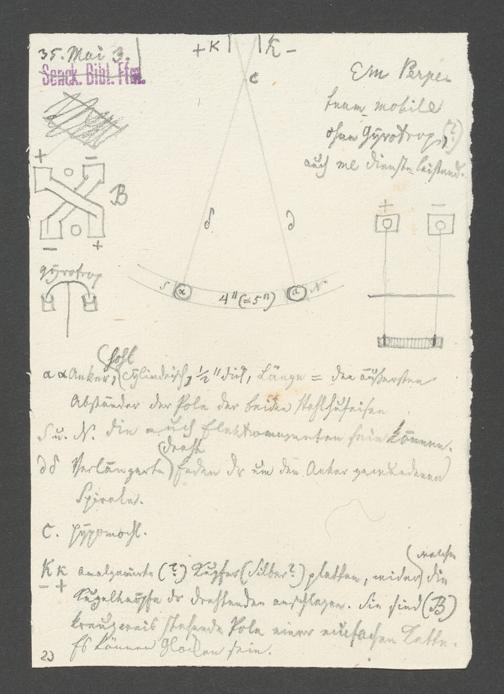 35. Mai 3.
Senck. Bibl. Ffm.
+K K-
C
Ein Perpe-
tuum mobile
ohne Gyrotrop (?)
auch me dienstleistend.
+ -
B
- +
+ -
Gyrotrop
δ δ
S α 4" (= 5") α N
α α Anker, (hohl) cylindrisch, ½" dick, Länge = den äußersten
Abständen der Pole der beiden Stahlhufeisen
S u. N. die auch Elektromagneten sein können.
δδ Verlängerte (Draht) Enden der um den Anker gewundenen
Spirale.
C. Hypomochl.
K K amalgamirte (?) Kupfer (Silber?) platten, wider (welche) die
- +
Kugelknöpfe der Drahtenden anschlagen. Sie sind (B)
kreuzweis stehende Pole einer einfachen Kette.
Es können Glocken sein.
23